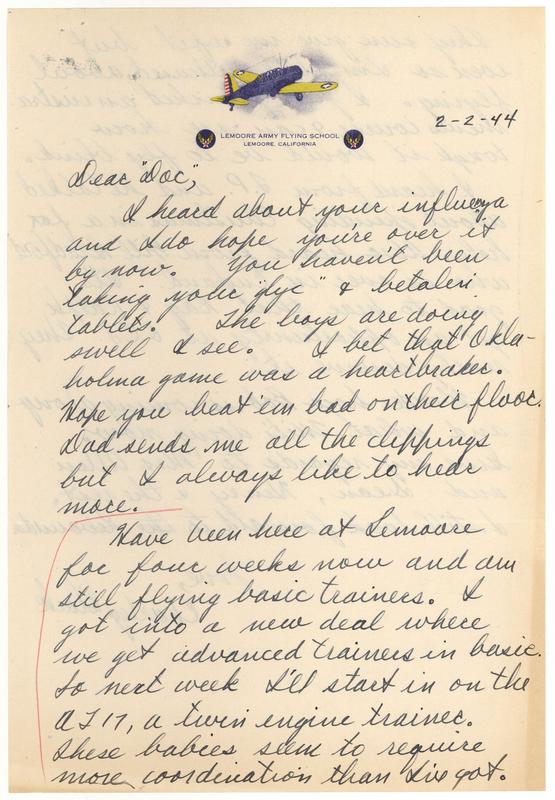 LEMOORE ARMY FLYING SCHOOL
LEMOORE, CALIFORNIA
2-2-44
Dear "Doc",
I heard about your influenza
and I do hope you're over it
by now. You haven't been
taking your "glyc" & betalin
tablets. The boys are doing
swell I see. I bet that Okla-
holma game was a heartbraker.
Hope you beat 'em bad on their floor.
Dad sends me all the clippings
but I always like to hear
more.
Have been here at Lemoore
for four weeks now and am
still flying basic trainers. I
got into a new deal where
we get advanced trainers in basic.
So next week I'll start in on the
AT 17, a twin engine trainer.
These babies seem to require
more coordination than I've got.